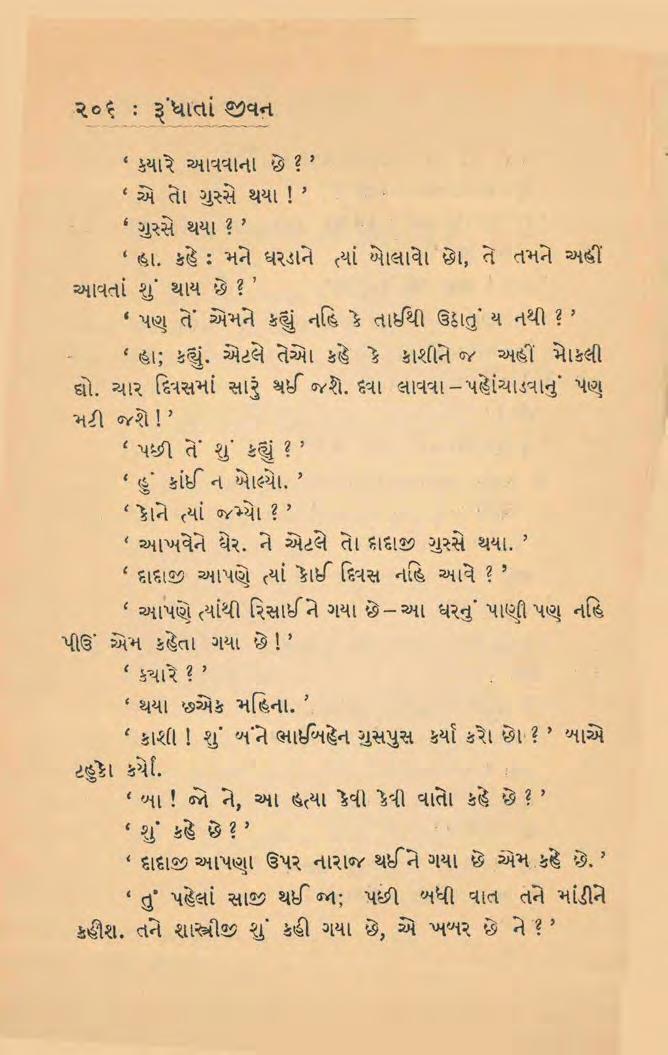 ૨૦૬ : રૂંધાતાં જીવન
‘ કયારે આવવાના છે ? ’
‘ એ તો ગુસ્સે થયા ! ’
‘ ગુસ્સે થયા ? ’
‘ હા. કહે : મને ઘરડાને ત્યાં બોલાવો છો, તે તમને અહીં
આવતાં શું થાય છે ? ’
‘ પણ તેં એમને કહ્યું નહિ કે તાઈથી ઉઠાતું ય નથી ? ’
‘ હા; કહ્યું. એટલે તેઓ કહે કે કાશીને જ અહીં મોકલી
દ્યો. ચાર દિવસમાં સારું થઈ જશે. દવા લાવવા – પહોંચાડવાનું પણ
મટી જશે ! ’
‘ પછી તેં શું કહ્યું ? ’
‘ હું કાંઈ ન બોલ્યો. ’
‘ કોને ત્યાં જમ્યો ? ’
‘ આખવેને ઘેર. ને એટલે તો દાદાજી ગુસ્સે થયા. ’
‘ દાદાજી આપણે ત્યાં કોઈ દિવસ નહિ આવે ? ’
‘ આપણે ત્યાંથી રિસાઈને ગયા છે – આ ઘરનું પાણી પણ નહિ
પીઉં એમ કહેતા ગયા છે ! ’
‘ કયારે ? ’
‘ થયા છએક મહિના. ’
‘ કાશી ! શું બંને ભાઈબહેન ગુસપુસ કર્યા કરો છો ? ’ બાએ
ટહુકો કર્યો.
‘ બા ! જો ને, આ હત્યા કેવી કેવી વાતો કહે છે ? ’
‘ શું કહે છે ? ’
‘ દાદાજી આપણા ઉપર નારાજ થઈને ગયા છે એમ કહે છે. ’
‘ તું પહેલાં સાજી થઈ જા; પછી બધી વાત તને માંડીને
કહીશ. તને શાસ્ત્રીજી શું કહી ગયા છે, એ ખબર છે ને ? ’